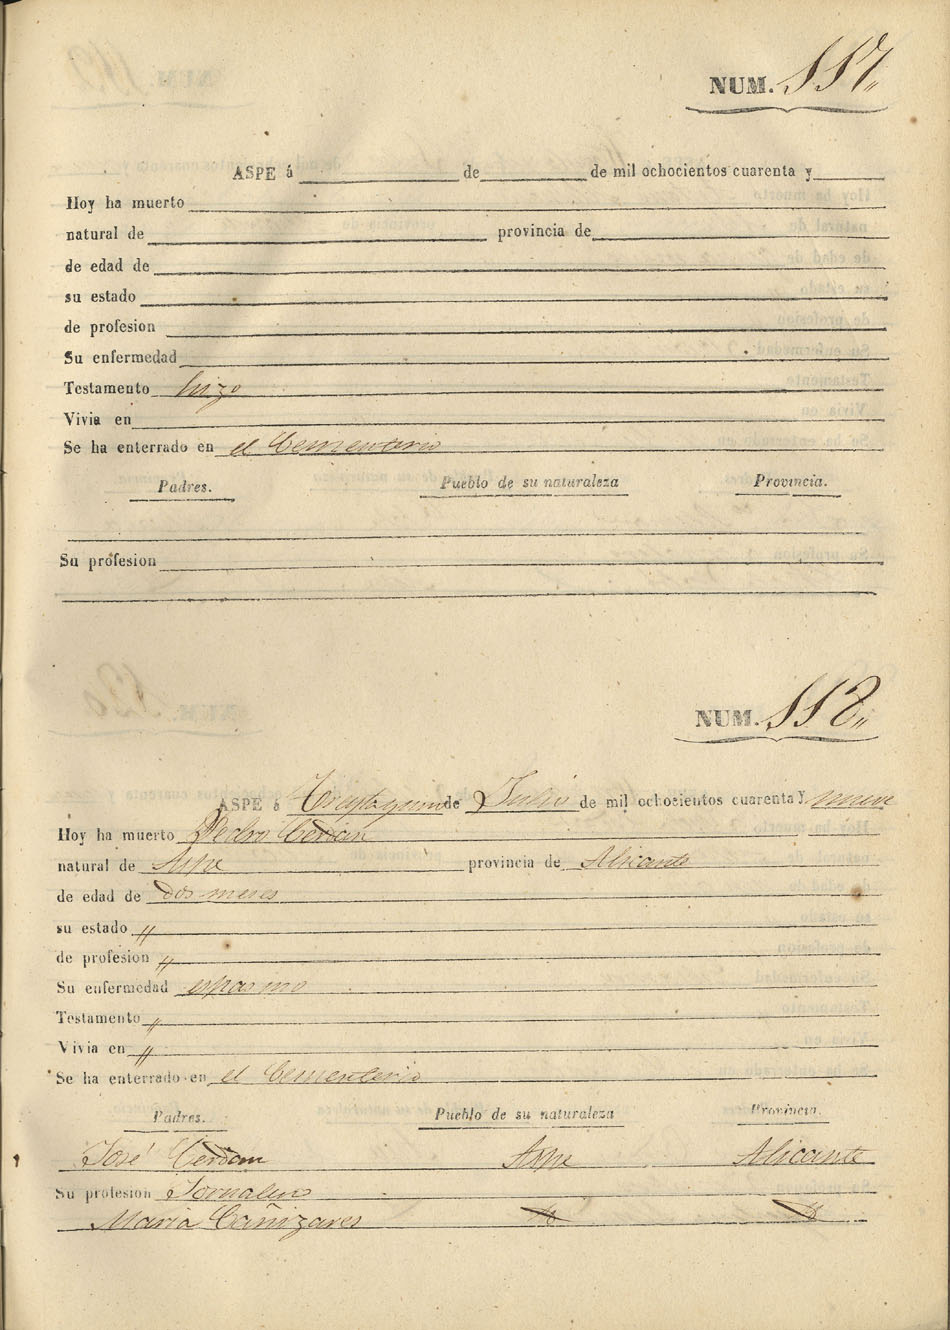 NUM. 117,,
ASPE á de de mil ochocientos cuarenta y
Hoy ha muerto
natural de provincia de
de edad de
su estado
de profesion
Su enfermedad
Testamento hizo
Vivia en
Se ha enterrado en el Cementerio
Padres. Pueblo de su naturaleza Provincia.
Su profesion
NUM. 118,,
ASPE á Treintayuno de Julio de mil ochocientos cuarenta y nueve
Hoy ha muerto Pedro Cerdán
natural de Aspe provincia de Alicante
de edad de dos meses
su estado ,,
de profesion ,,
Su enfermedad espasmo
Testamento ,,
Vivia en ,,
Se ha enterrado en el Cementerio
Padres. Pueblo de su naturaleza Provincia.
José Cerdan Aspe Alicante
Su profesion Jornalero
Maria Cañizares